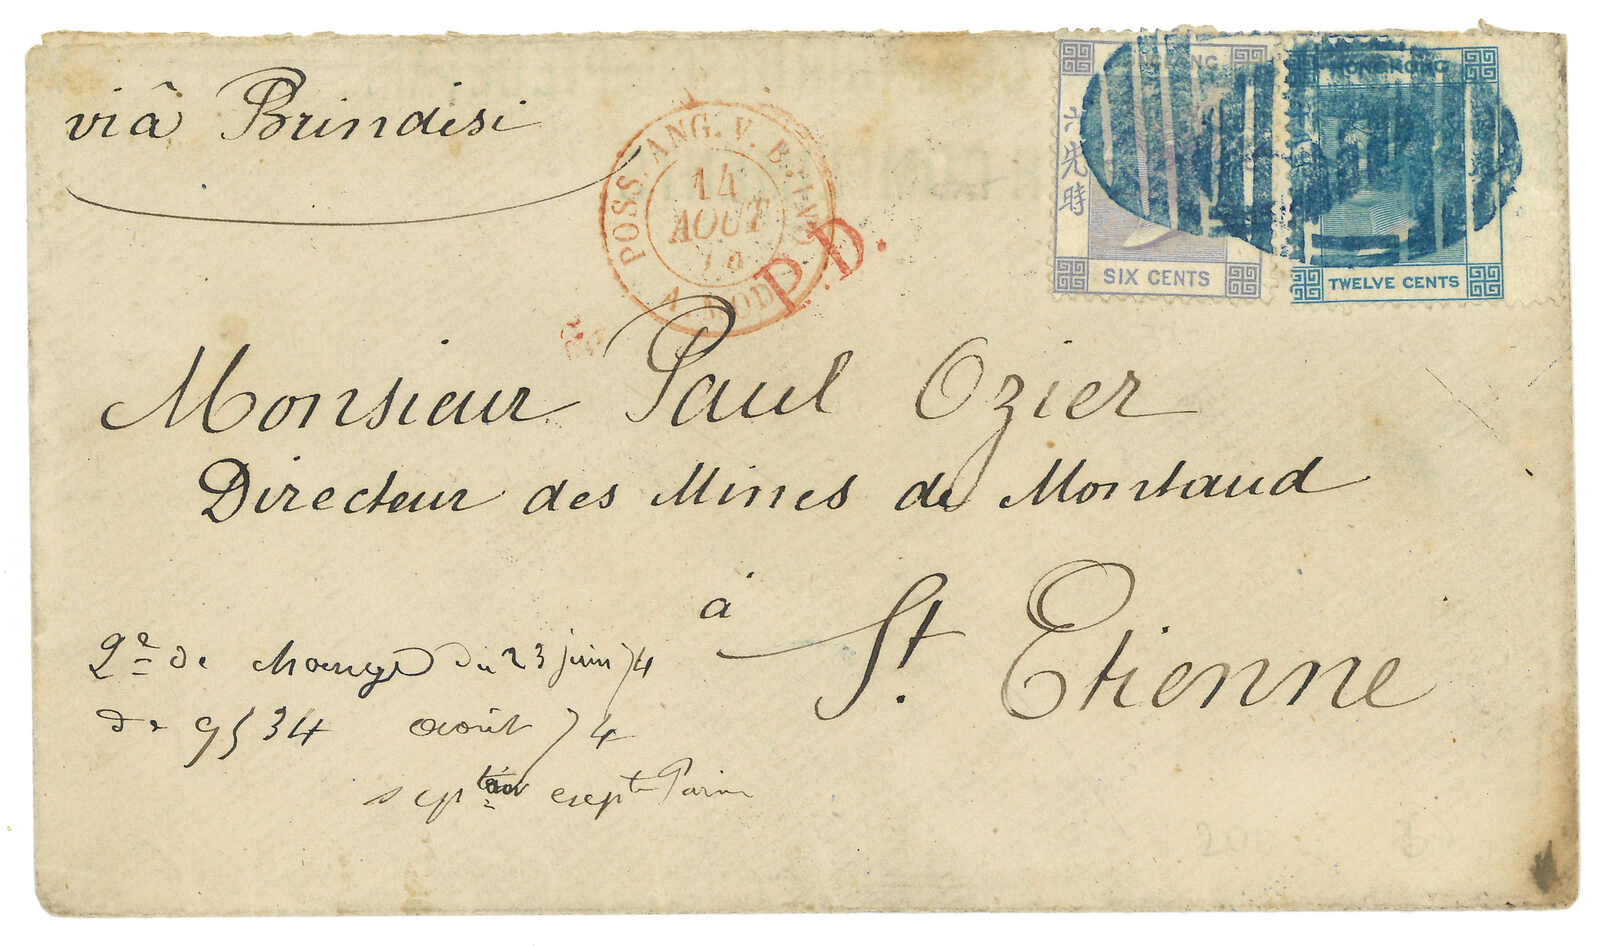 viâ Brindisi
POSS. ANG. V. BRIND.
14
AOUT
A. MOD
P.D.
六先時
SIX CENTS
HONG KONG
TWELVE CENTS
Monsieur Paul Ozier
Directeur des Mines de Montaud
à St. Etienne
2e de change du 23 juin 74
de 9534 août 74